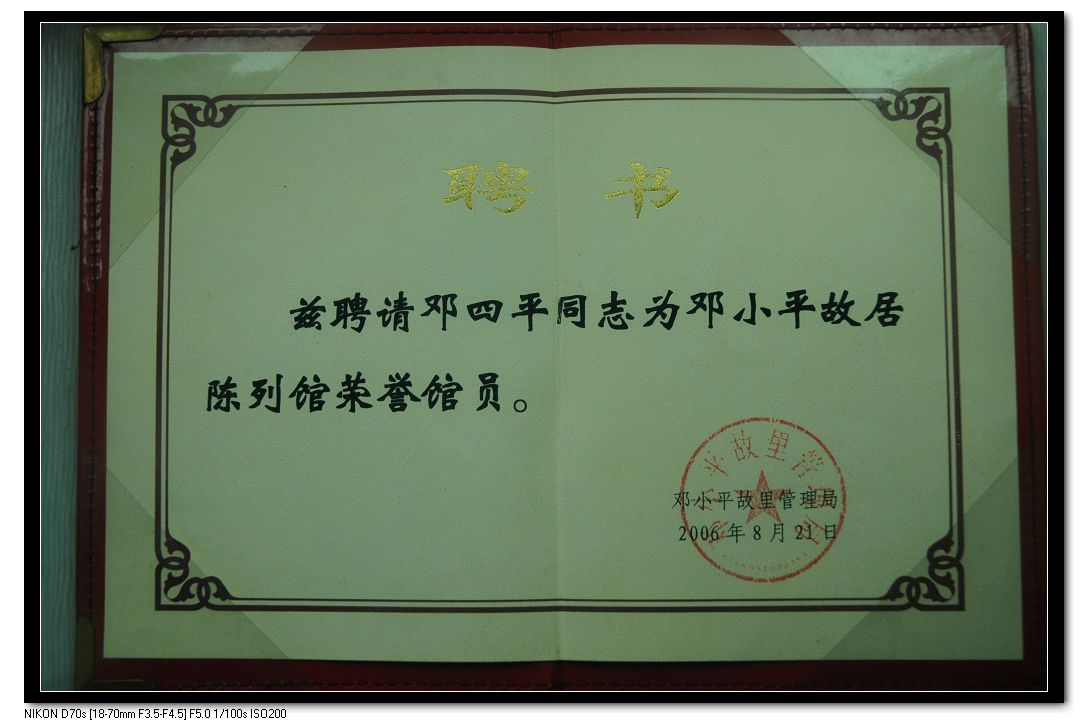 聘书
兹聘请邓四平同志为邓小平故居
陈列馆荣誉馆员。
邓小平故里管理局
2006年8月21日
邓小平故里管理局
NIKON D70s [18-70mm F3.5-F4.5] F5.0 1/100s ISO200